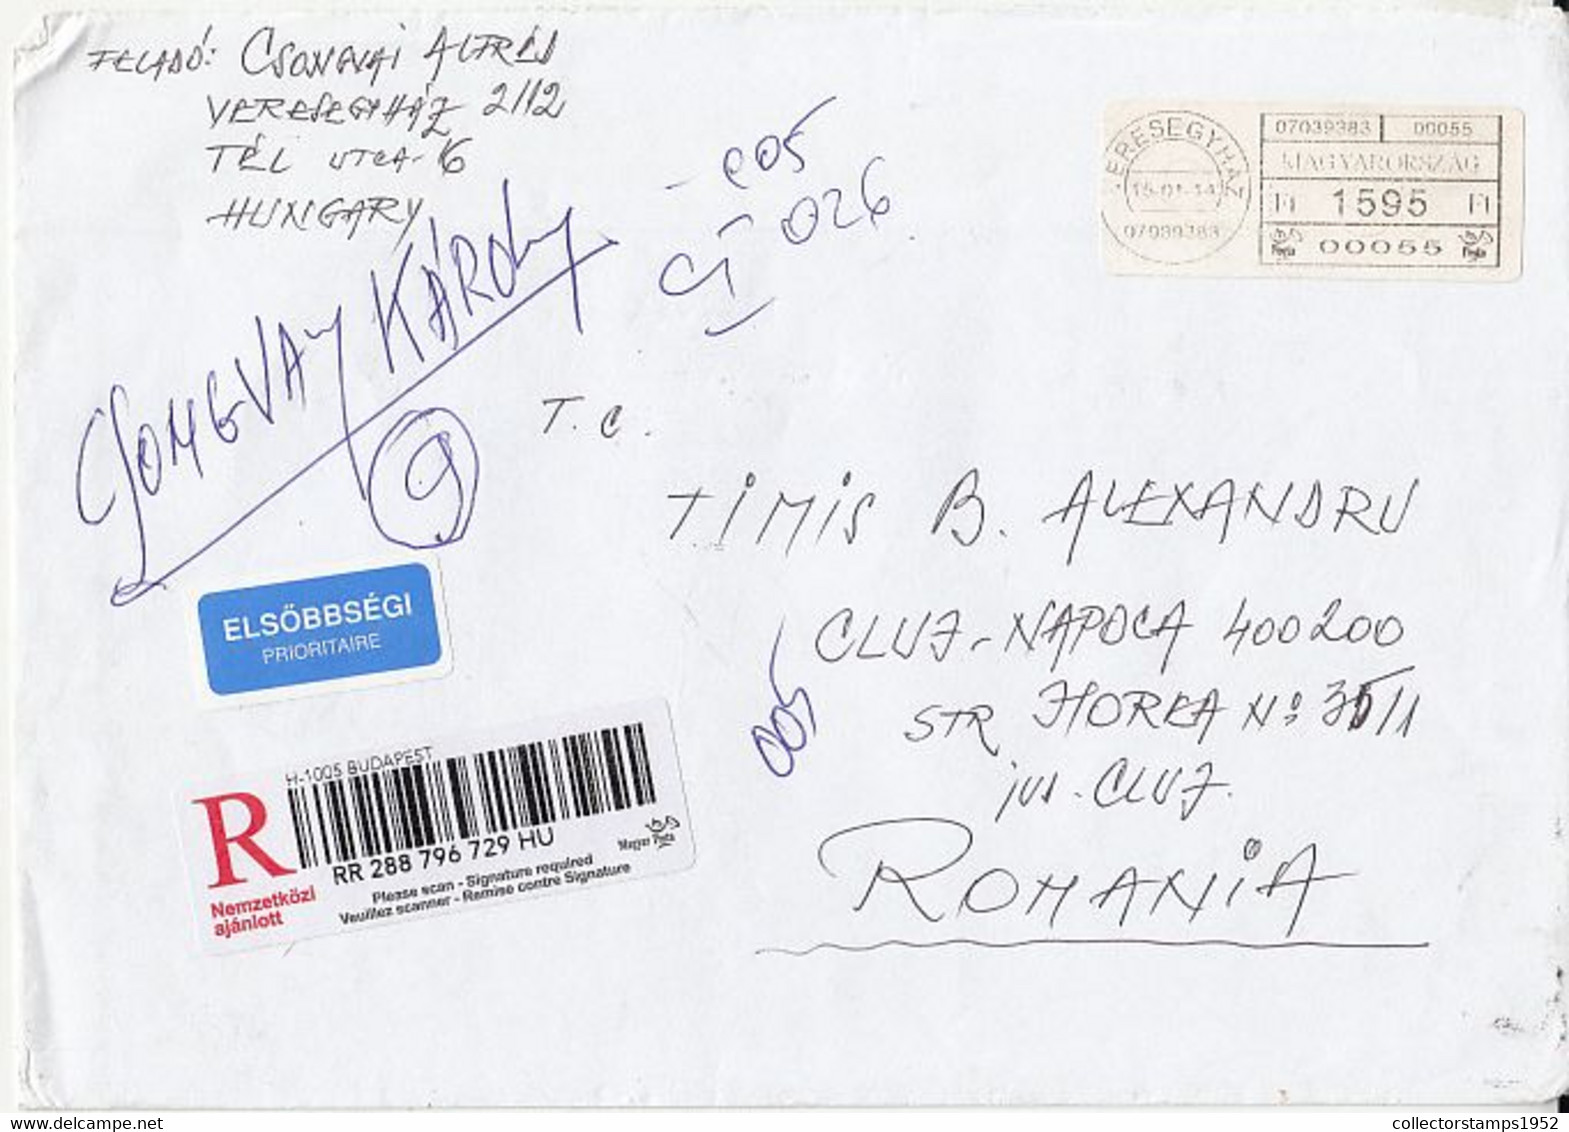 FELADÓ: CSONGVAI ALFRÉD
VERESEGYHÁZ 2112
TÉL UTCA-16
HUNGARY
CSONGVAY KÁROLY
9
- 005
CJ 026
VERESEGYHÁZ
15-01-14
07039383
07039383 00055
MAGYARORSZÁG
Ft 1595 Ft
Posta 00055 Posta
T. C.
TIMIS B. ALEXANDRU
CLUJ-NAPOCA 400200
STR HOREA Nº 35/1
jud. CLUJ.
ROMANIA
005
ELSŐBBSÉGI
PRIORITAIRE
H-1005 BUDAPEST
R
RR 288 796 729 HU
Magyar Posta
Nemzetközi
ajánlott
Please scan - Signature required
Veuillez scanner - Remise contre Signature
collectorstamps1952